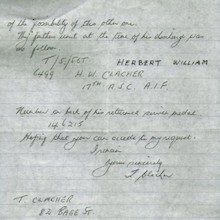 of the possibility of this other one.
My father's unit at the time of his discharge was
as follows
T/S/SGT HERBERT WILLIAM
6499 H. W. CLACHER
17TH A.S.C. A.I.F.
Number on back of his returned service medal
146215
Hoping that you can accede to my request
I remain
Yours sincerely
T Clacher
T. CLACHER
82 PAGE St.